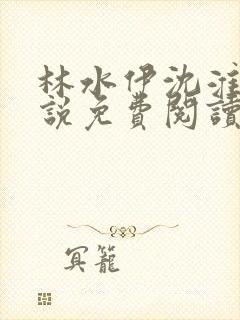 林水伊沈淮
說免費閱讀
冥籠